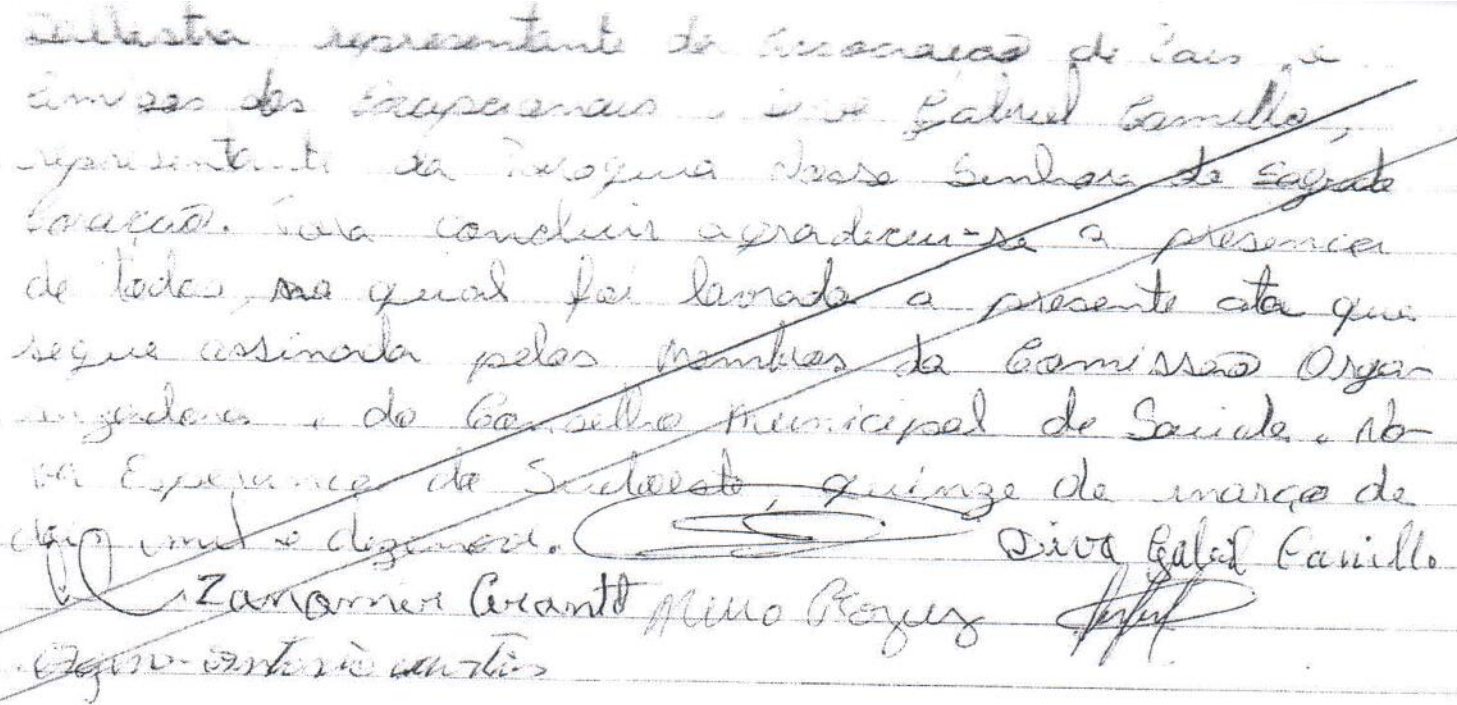 representante da Associação de Pais e
Amigos dos Excepcionais, Gabriel Camillo,
representante da Paroquia Nossa Senhora do Sagrado
Coração. Para concluir agradeceu-se a presença
de todos, na qual foi lavrada a presente ata que
segue assinada pelos membros da Comissão Orga-
nizadora e do Conselho Municipal de Saúde. No-
va Esperança do Sudoeste, quinze de março de
dois mil e dezenove. Diva Gabriel Camillo
Zanamir